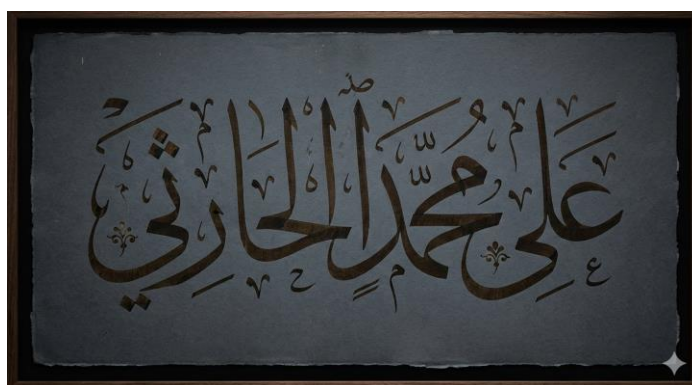 عَلِي مُحَمَّدٍ الحَارِثِي